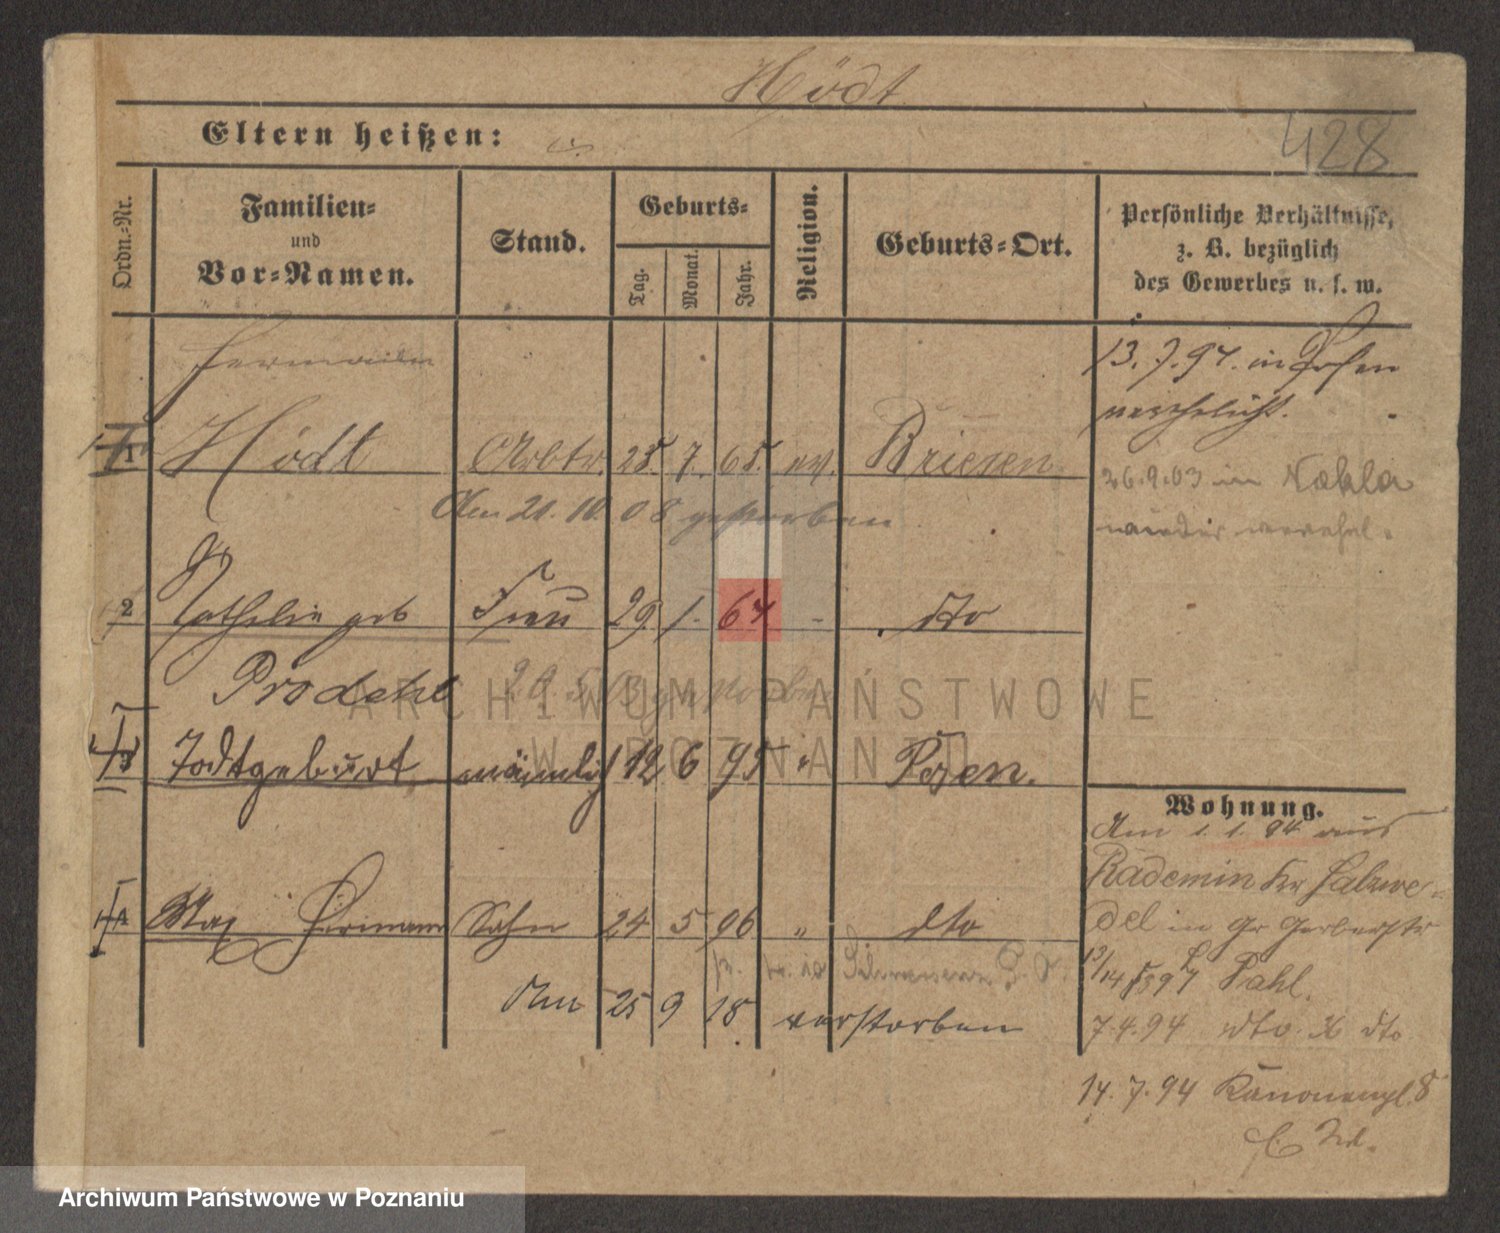 Hödt
428
Eltern heißen:
Ordn.-Nr.
Familien-
und
Vor-Namen.
Stand.
Geburts-
Tag.
Monat.
Jahr.
Religion.
Geburts-Ort.
Persönliche Verhältnisse,
z. B. bezüglich
des Gewerbes u. s. w.
Hermann
1 Hödt Arbtr. 25. 7. 65. ev. Briesen
Am 21. 10. 08 gestorben
13. 7. 94. in Posen
verehelicht.
26.9.03 in Nakla
wieder verehel.
2 Mathilde geb Frau 29. 1. 64. - dto
Prodehl
3 Todtgeburt männlich 12 6 95 " Posen.
4 Max Hermann Sohn 24 5 96 " dto
Am 25 9 18 verstorben
Wohnung.
Am 1. 1. 94 aus
Rademin Kr Salzwe-
del in Gr Gerberstr
7.4.94 dto. dto
14. 7. 94 Kanonenpl. 8
ARCHIWUM PAŃSTWOWE
W POZNANIU
Archiwum Państwowe w Poznaniu